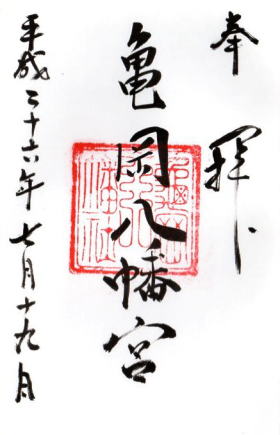 奉拝
亀岡八幡宮
平成二十六年七月十九日